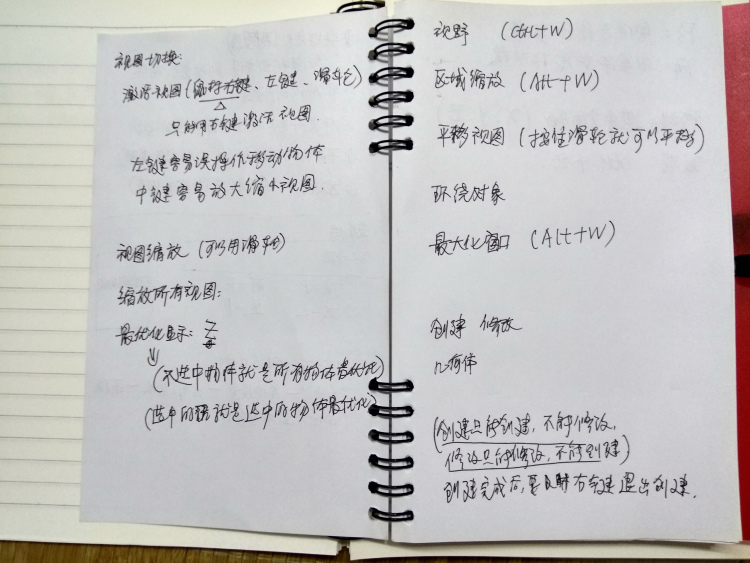 视图切换:
激活视图(鼠标右键、左键、滑轮)
只能用右键激活视图.
左键容易误操作移动物体
中键容易放大缩小视图.
视图缩放 (可以用滑轮)
缩放所有视图:
最优化显示: Z
(不选中物体就是所有物体最优化)
(选中的话就是选中的物体最优化)
视野 (Ctrl+W)
区域缩放 (Alt+W)
平移视图 (按住滑轮就可以平移)
环绕对象
最大化窗口 (Alt+W)
创建 修改
几何体
(创建只能创建, 不能修改,
修改只能修改, 不能创建)
创建完成后, 要点击右键退出创建.